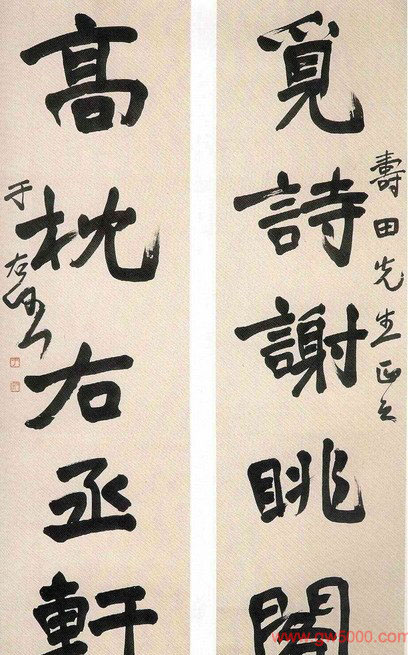 壽田先生正之
覓詩謝眺閣
高枕右丞軒
于右任
www.gw5000.com